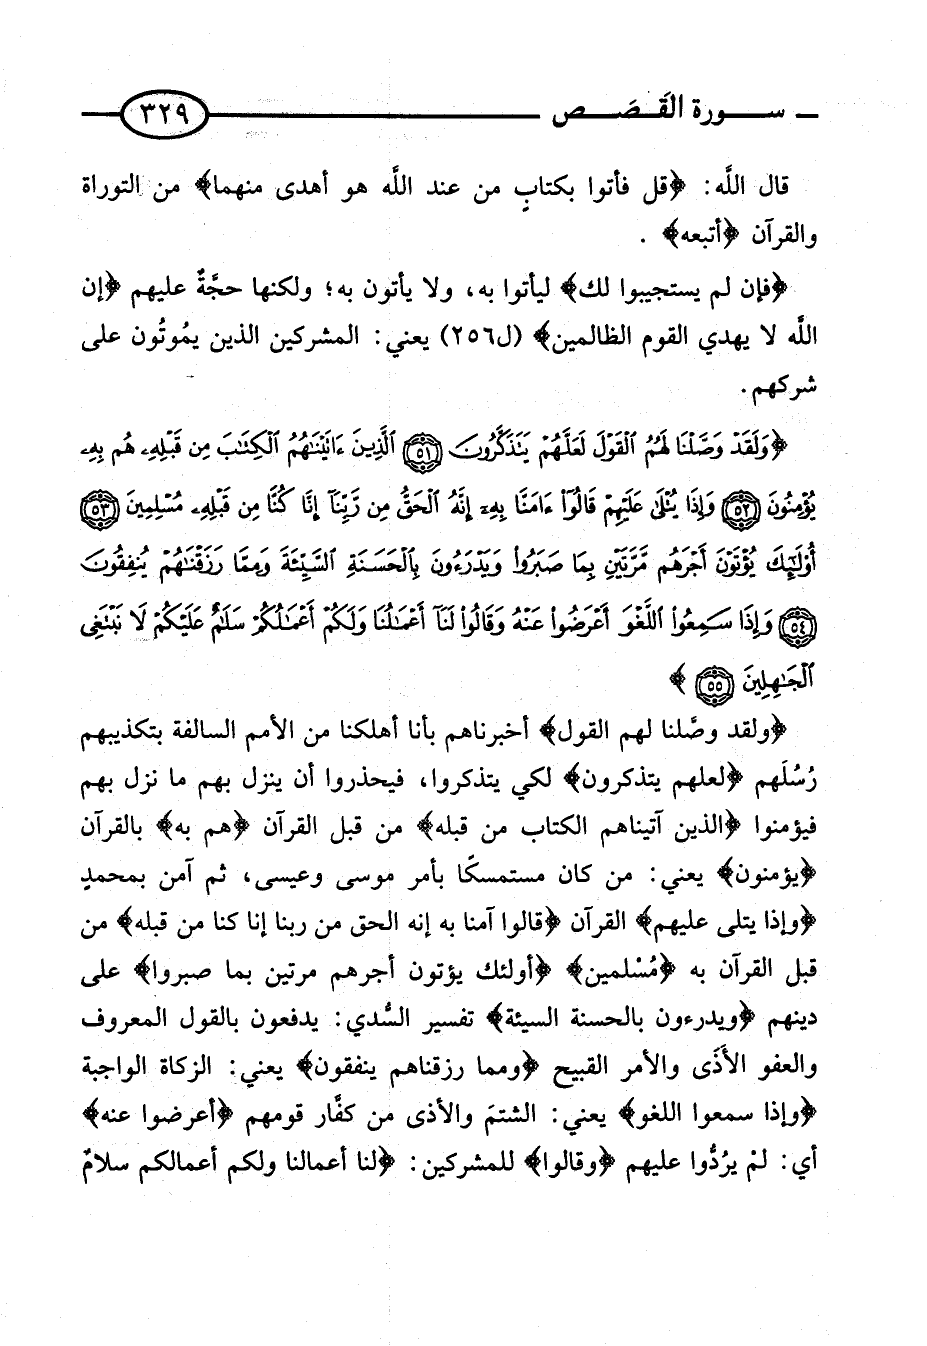 سورة القَصَص ٣٢٩
قال اللَّه: ﴿قل فأتوا بكتابٍ من عند اللَّه هو أهدى منهما﴾ من التوراة
والقرآن ﴿أتبعه﴾ .
﴿فإن لم يستجيبوا لك﴾ ليأتوا به، ولا يأتون به؛ ولكنها حجَّةٌ عليهم ﴿إن
اللَّه لا يهدي القوم الظالمين﴾ (ل٢٥٦) يعني: المشركين الذين يمُوتُون على
شركهم.
﴿وَلَقَدْ وَصَّلْنَا لَهُمُ ٱلْقَوْلَ لَعَلَّهُمْ يَتَذَكَّرُونَ ٥١ ٱلَّذِينَ ءَاتَيْنَٰهُمُ ٱلْكِتَٰبَ مِن قَبْلِهِۦ هُم بِهِۦ
يُؤْمِنُونَ ٥٢ وَإِذَا يُتْلَىٰ عَلَيْهِمْ قَالُوٓا۟ ءَامَنَّا بِهِۦٓ إِنَّهُ ٱلْحَقُّ مِن رَّبِّنَآ إِنَّا كُنَّا مِن قَبْلِهِۦ مُسْلِمِينَ ٥٣
أُو۟لَٰٓئِكَ يُؤْتَوْنَ أَجْرَهُم مَّرَّتَيْنِ بِمَا صَبَرُوا۟ وَيَدْرَءُونَ بِٱلْحَسَنَةِ ٱلسَّيِّئَةَ وَمِمَّا رَزَقْنَٰهُمْ يُنفِقُونَ
٥٤ وَإِذَا سَمِعُوا۟ ٱللَّغْوَ أَعْرَضُوا۟ عَنْهُ وَقَالُوا۟ لَنَآ أَعْمَٰلُنَا وَلَكُمْ أَعْمَٰلُكُمْ سَلَٰمٌ عَلَيْكُمْ لَا نَبْتَغِى
ٱلْجَٰهِلِينَ ٥٥ ﴾
﴿ولقد وصَّلنا لهم القول﴾ أخبرناهم بأنا أهلكنا من الأمم السالفة بتكذيبهم
رُسُلَهم ﴿لعلهم يتذكرون﴾ لكي يتذكروا، فيحذروا أن ينزل بهم ما نزل بهم
فيؤمنوا ﴿الذين آتيناهم الكتاب من قبله﴾ من قبل القرآن ﴿هم به﴾ بالقرآن
﴿يؤمنون﴾ يعني: من كان مستمسكًا بأمر موسى وعيسى، ثم آمن بمحمدٍ
﴿وإذا يتلى عليهم﴾ القرآن ﴿قالوا آمنا به إنه الحق من ربنا إنا كنا من قبله﴾ من
قبل القرآن به ﴿مُسْلمين﴾ ﴿أولئك يؤتون أجرهم مرتين بما صبروا﴾ على
دينهم ﴿ويدرءون بالحسنة السيئة﴾ تفسير السُّدي: يدفعون بالقول المعروف
والعفو الأَذَى والأمر القبيح ﴿ومما رزقناهم ينفقون﴾ يعني: الزكاة الواجبة
﴿وإذا سمعوا اللغو﴾ يعني: الشتمَ والأذى من كفَّار قومهم ﴿أعرضوا عنه﴾
أي: لمْ يرُدُّوا عليهم ﴿وقالوا﴾ للمشركين: ﴿لنا أعمالنا ولكم أعمالكم سلامٌ